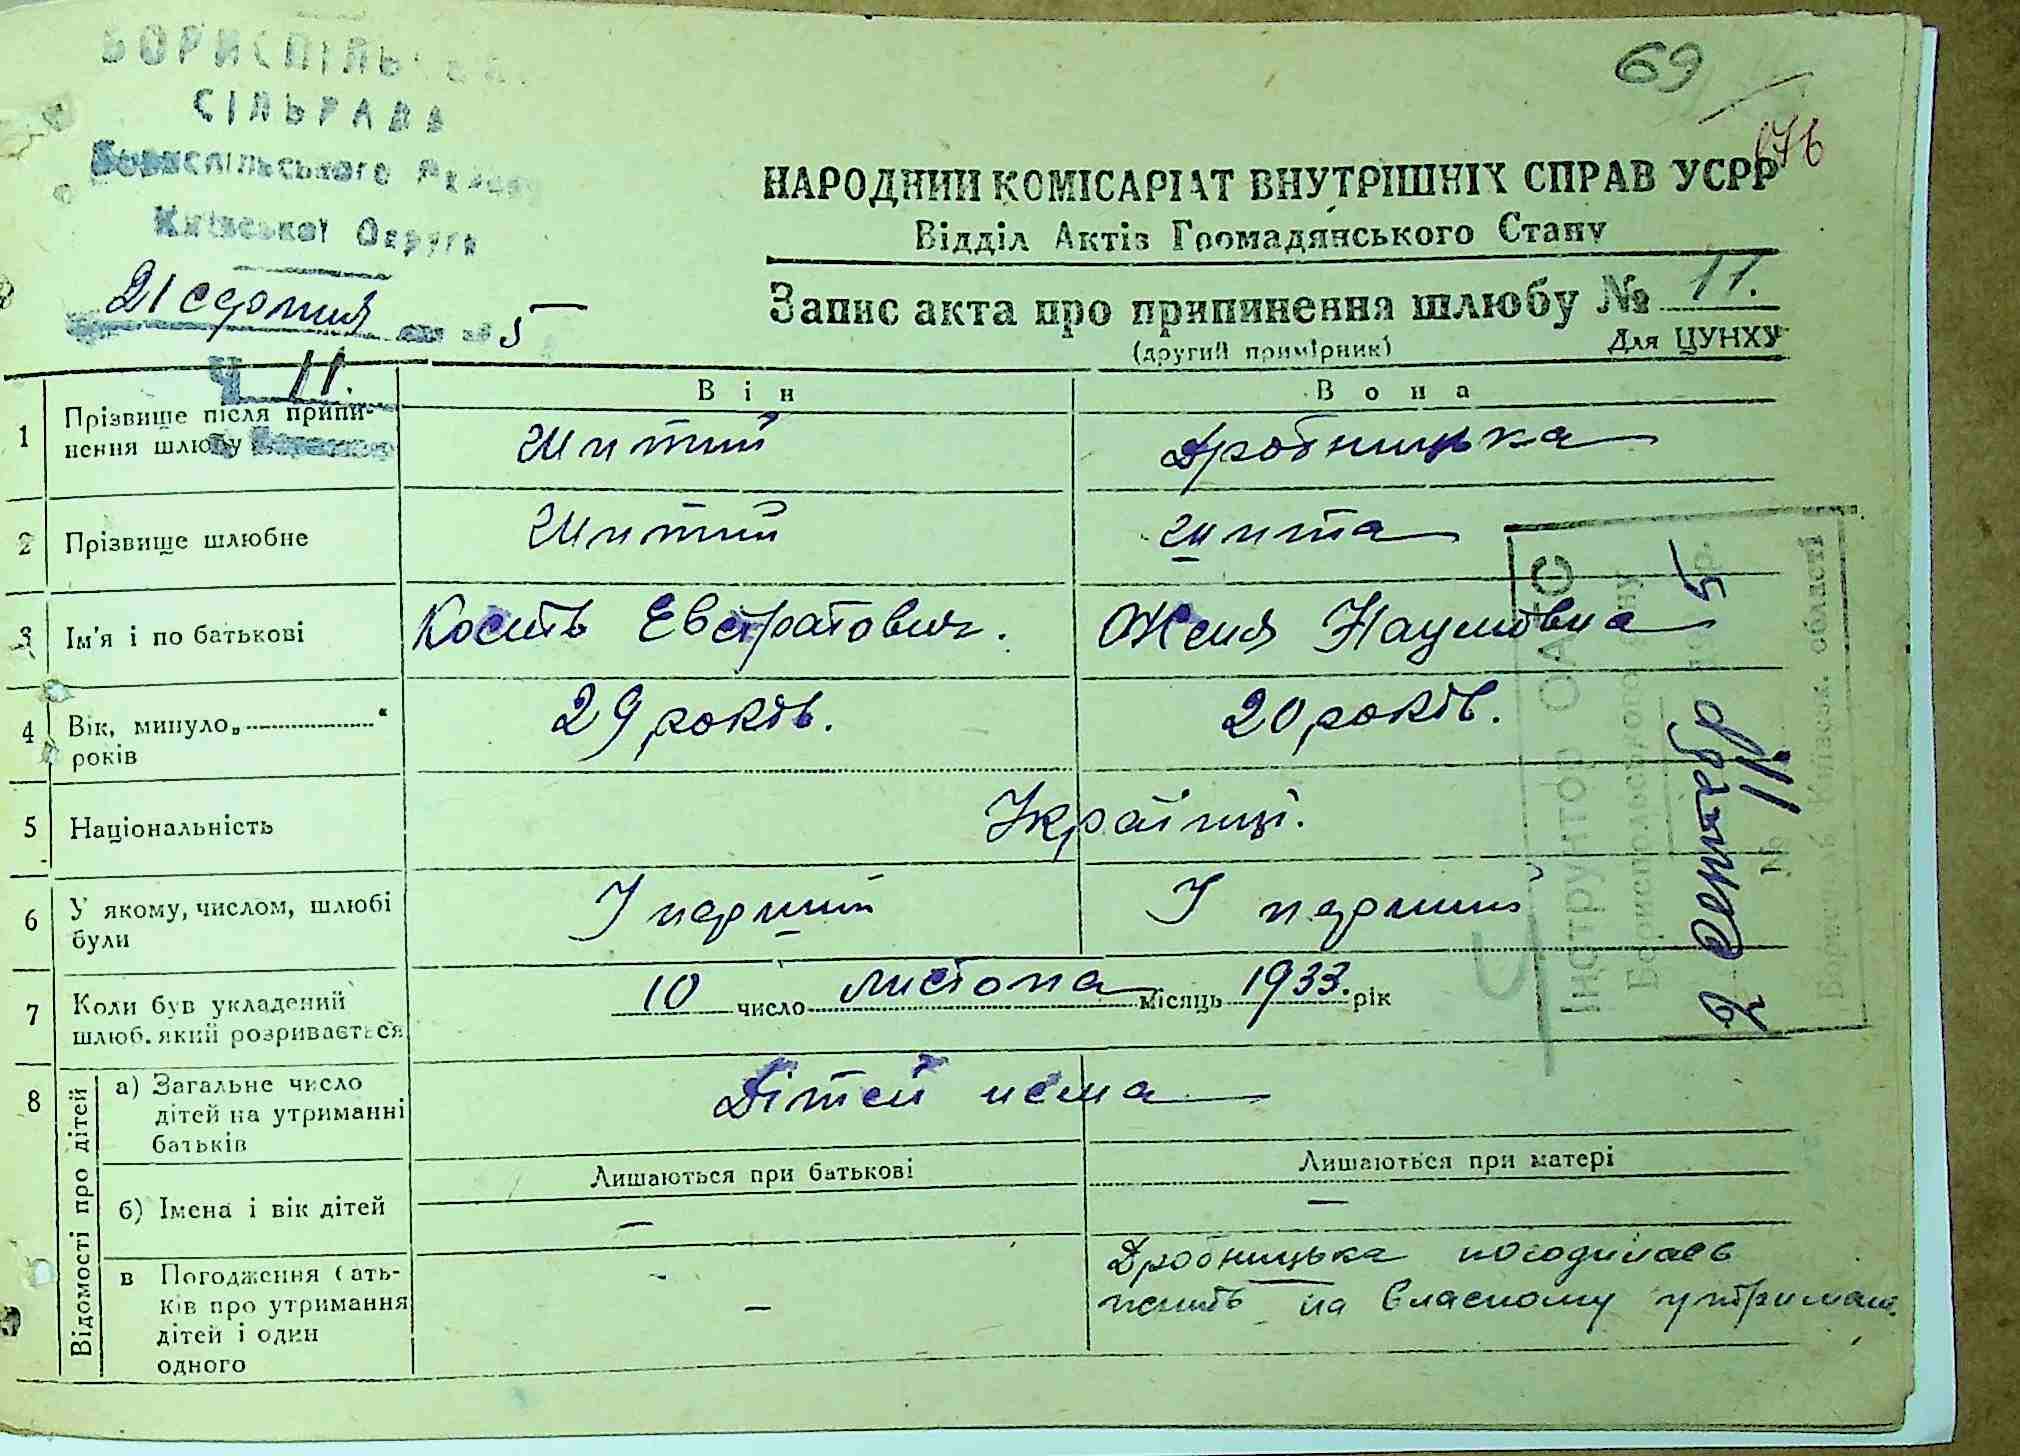 БОРИСПІЛЬСЬКА
СІЛЬРАДА
Бориспільського Району
Київської Округи
21 серпня 5
Ч 11.
69
НАРОДНИЙ КОМІСАРІАТ ВНУТРІШНІХ СПРАВ УСРР
Відділ Актів Громадянського Стану
Запис акта про припинення шлюбу № 11.
(другий примірник) Для ЦУНХУ
Він Вона
1 Прізвище після припи-
нення шлюбу Шитий Дробницька
2 Прізвище шлюбне Шитий Шита
3 Ім'я і по батькові Кость Евстратович. Женя Наумовна
4 Вік, минуло „ “
років 29 років. 20 років.
5 Національність Українці.
6 У якому, числом, шлюбі
були І перший І перший
7 Коли був укладений
шлюб, який розривається 10 число листопа місяць 1933. рік
8 Відомості про дітей
а) Загальне число
дітей на утриманні
батьків Дітей нема
Лишаються при батькові Лишаються при матері
б) Імена і вік дітей — —
в Погодження бать-
ків про утримання
дітей і один
одного — Дробницька погодилась
жить на власному утриман.
Інструктор ОАГС
Бориспольського
5 р.
№ 11
Бориспіль Київськ. області